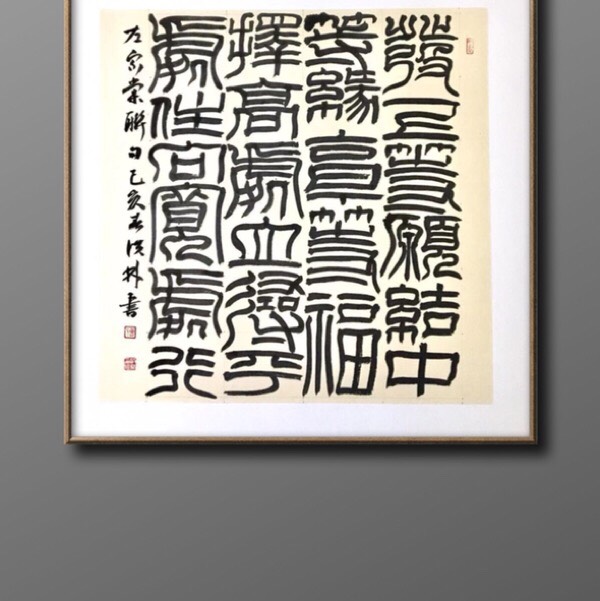 發上等願結中
等緣享等福
擇高處立尋平
處住向寬處行
左宗棠聯句己亥春林書